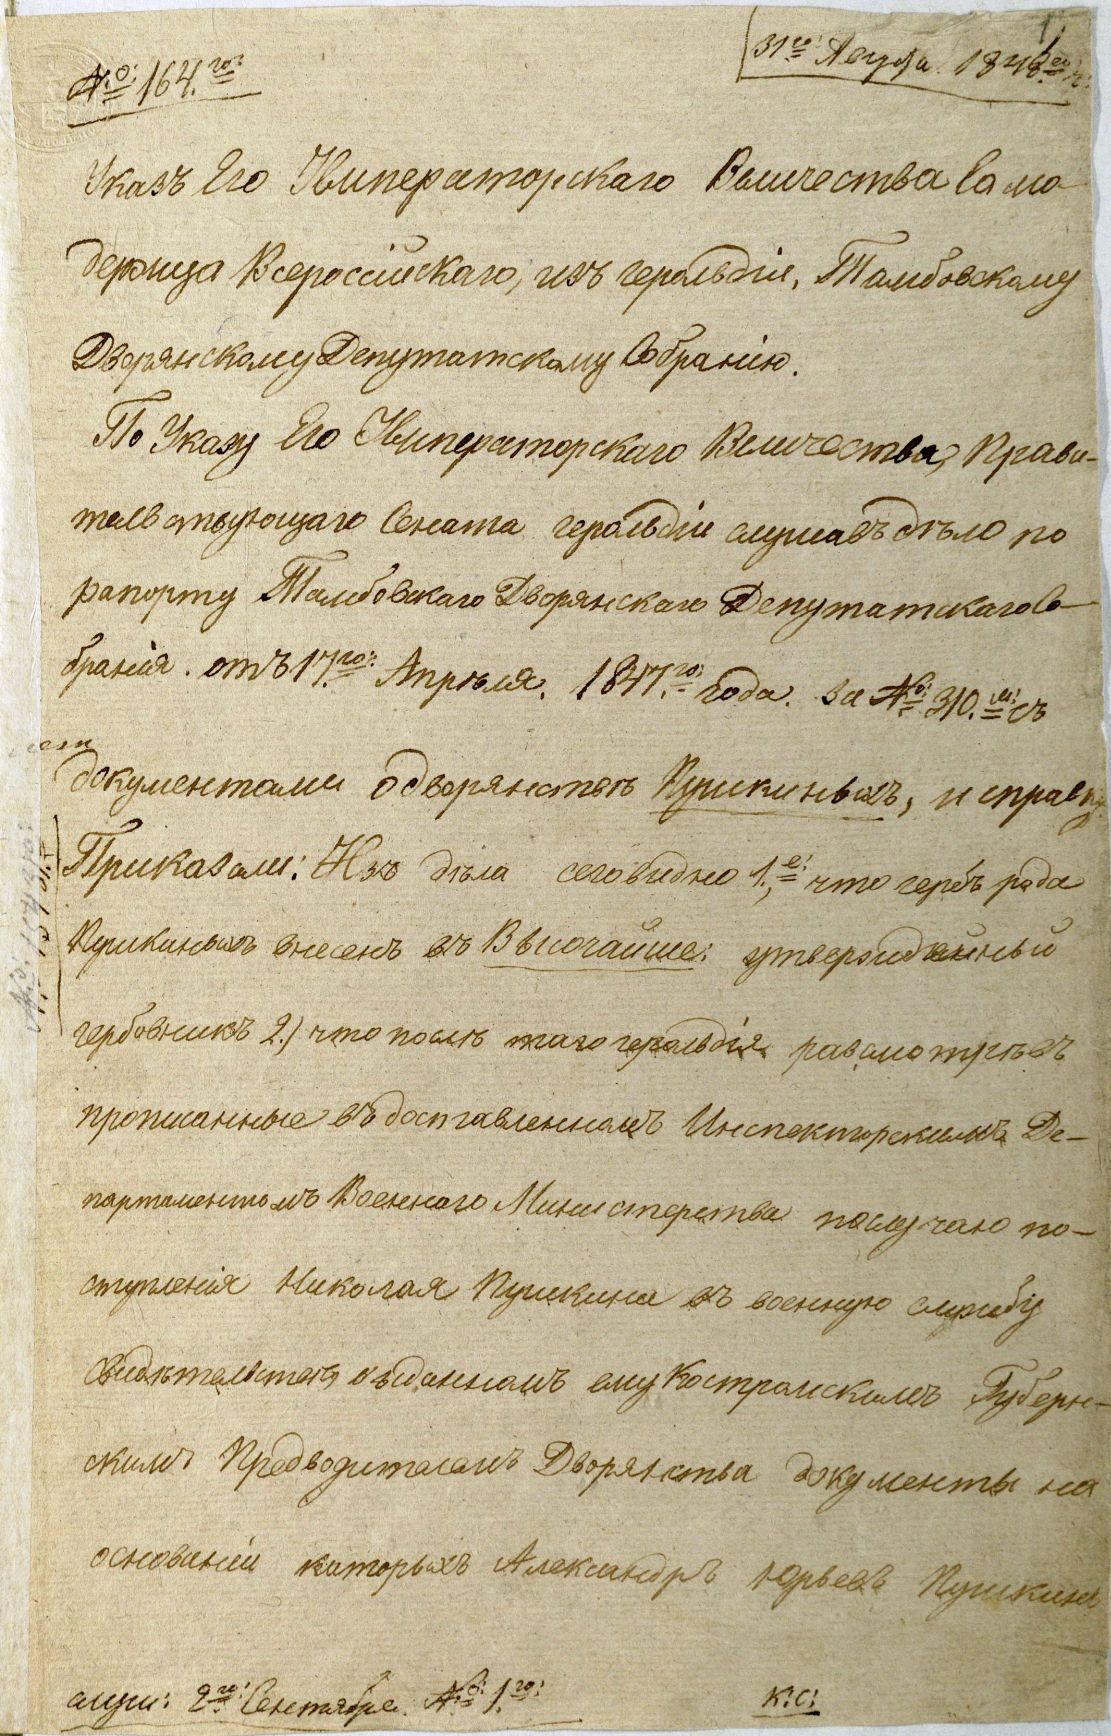 № 164.го:
31го: Августа 184
Указъ Его Императорскаго Величества Само-
держца Всероссійскаго, изъ герольдіи, Тамбовскому
Дворянскому Депутатскому Собранію.
По Указу Его Императорскаго Величества, Прави-
тельствующаго Сената герольдіи слушавъ дѣло по
рапорту Тамбовскаго Дворянскаго Депутатскаго Со-
бранія. отъ 17.го: Апрѣля. 1847.го: года. за № 310.м: съ
документами о дворянствѣ Пушкиныхъ, и справку
Приказали: Изъ дѣла сего видно 1.е: что гербъ рода
Пушкиныхъ внесенъ въ Высочайше: утвержденный
гербовникъ 2.) что послѣ того герольдія разсмотрѣвъ
прописанные въ доставленномъ Инспекторскимъ Де-
партаментомъ Военнаго Министерства послучаю по-
ступленія Николая Пушкина въ военную службу
свидѣтельствѣ, выданномъ ему Костромскимъ Губерн-
скимъ Предводителемъ Дворянства документы на
основаніи которыхъ Александръ Юрьевъ Пушкинъ
слуш: 2го: Сентября. № 1.го:
К:С: